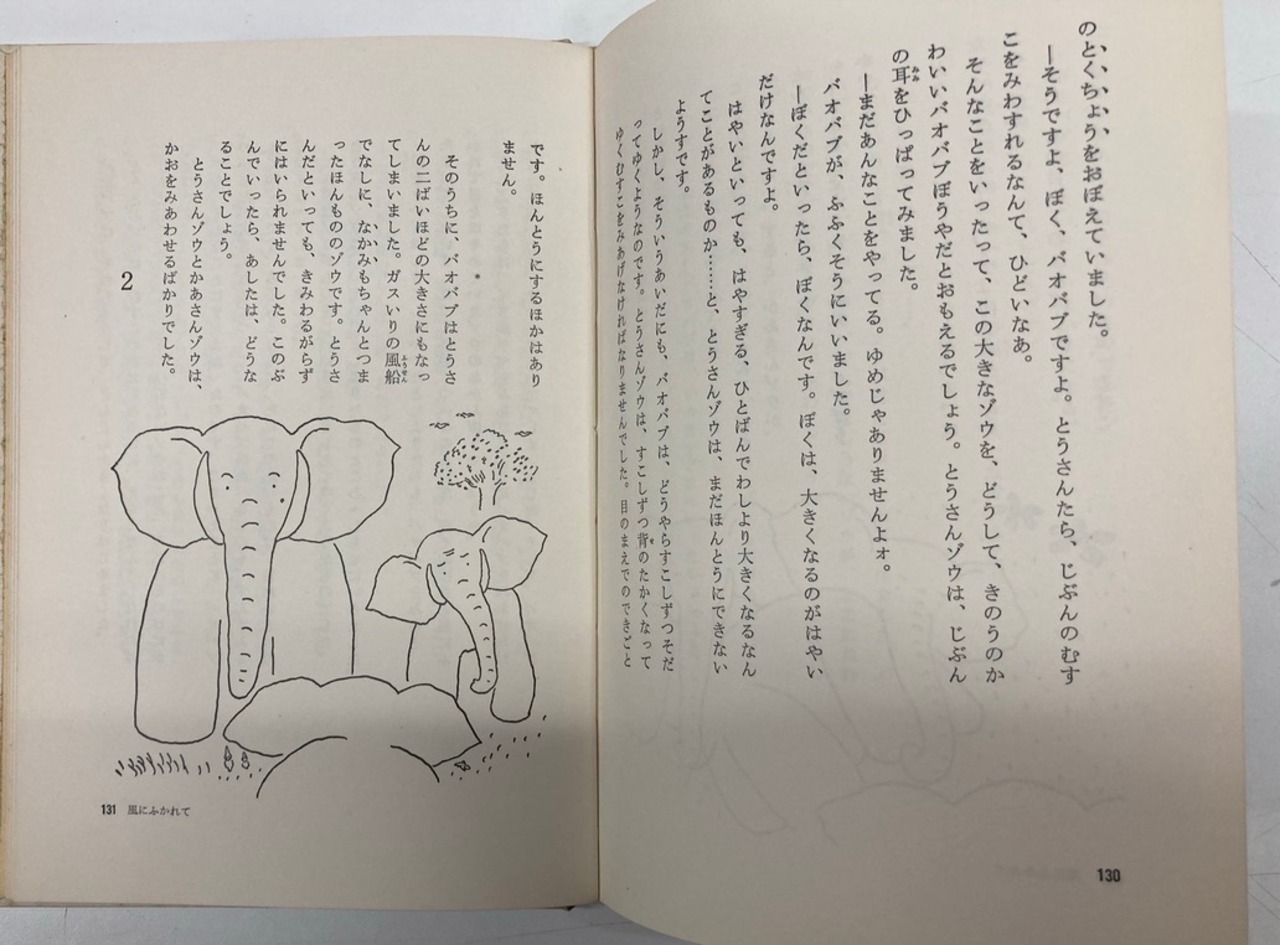 のとくちょうをおぼえていました。
―そうですよ、ぼく、バオバブですよ。とうさんたら、じぶんのむす
こをみわすれるなんて、ひどいなあ。
そんなことをいったって、この大きなゾウを、どうして、きのうのか
わいいバオバブぼうやだとおもえるでしょう。とうさんゾウは、じぶん
の耳をひっぱってみました。
―まだあんなことをやってる。ゆめじゃありませんよォ。
バオバブが、ふふくそうにいいました。
―ぼくだといったら、ぼくなんです。ぼくは、大きくなるのがはやい
だけなんですよ。
はやいといっても、はやすぎる、ひとばんでわしより大きくなるなん
てことがあるものか……と、とうさんゾウは、まだほんとうにできない
ようすです。
しかし、そういうあいだにも、バオバブは、どうやらすこしずつそだ
ってゆくようなのです。とうさんゾウは、すこしずつ背のたかくなって
ゆくむすこをみあげなければなりませんでした。目のまえでのできごと
130
です。ほんとうにするほかはあり
ません。
*
そのうちに、バオバブはとうさ
んの二ばいほどの大きさにもなっ
てしまいました。ガスいりの風船
でなしに、なかみもちゃんとつま
ったほんもののゾウです。とうさ
んだといっても、きみわるがらず
にはいられませんでした。このぶ
んでいったら、あしたは、どうな
ることでしょう。
とうさんゾウとかあさんゾウは、
かおをみあわせるばかりでした。
2
131 風にふかれて